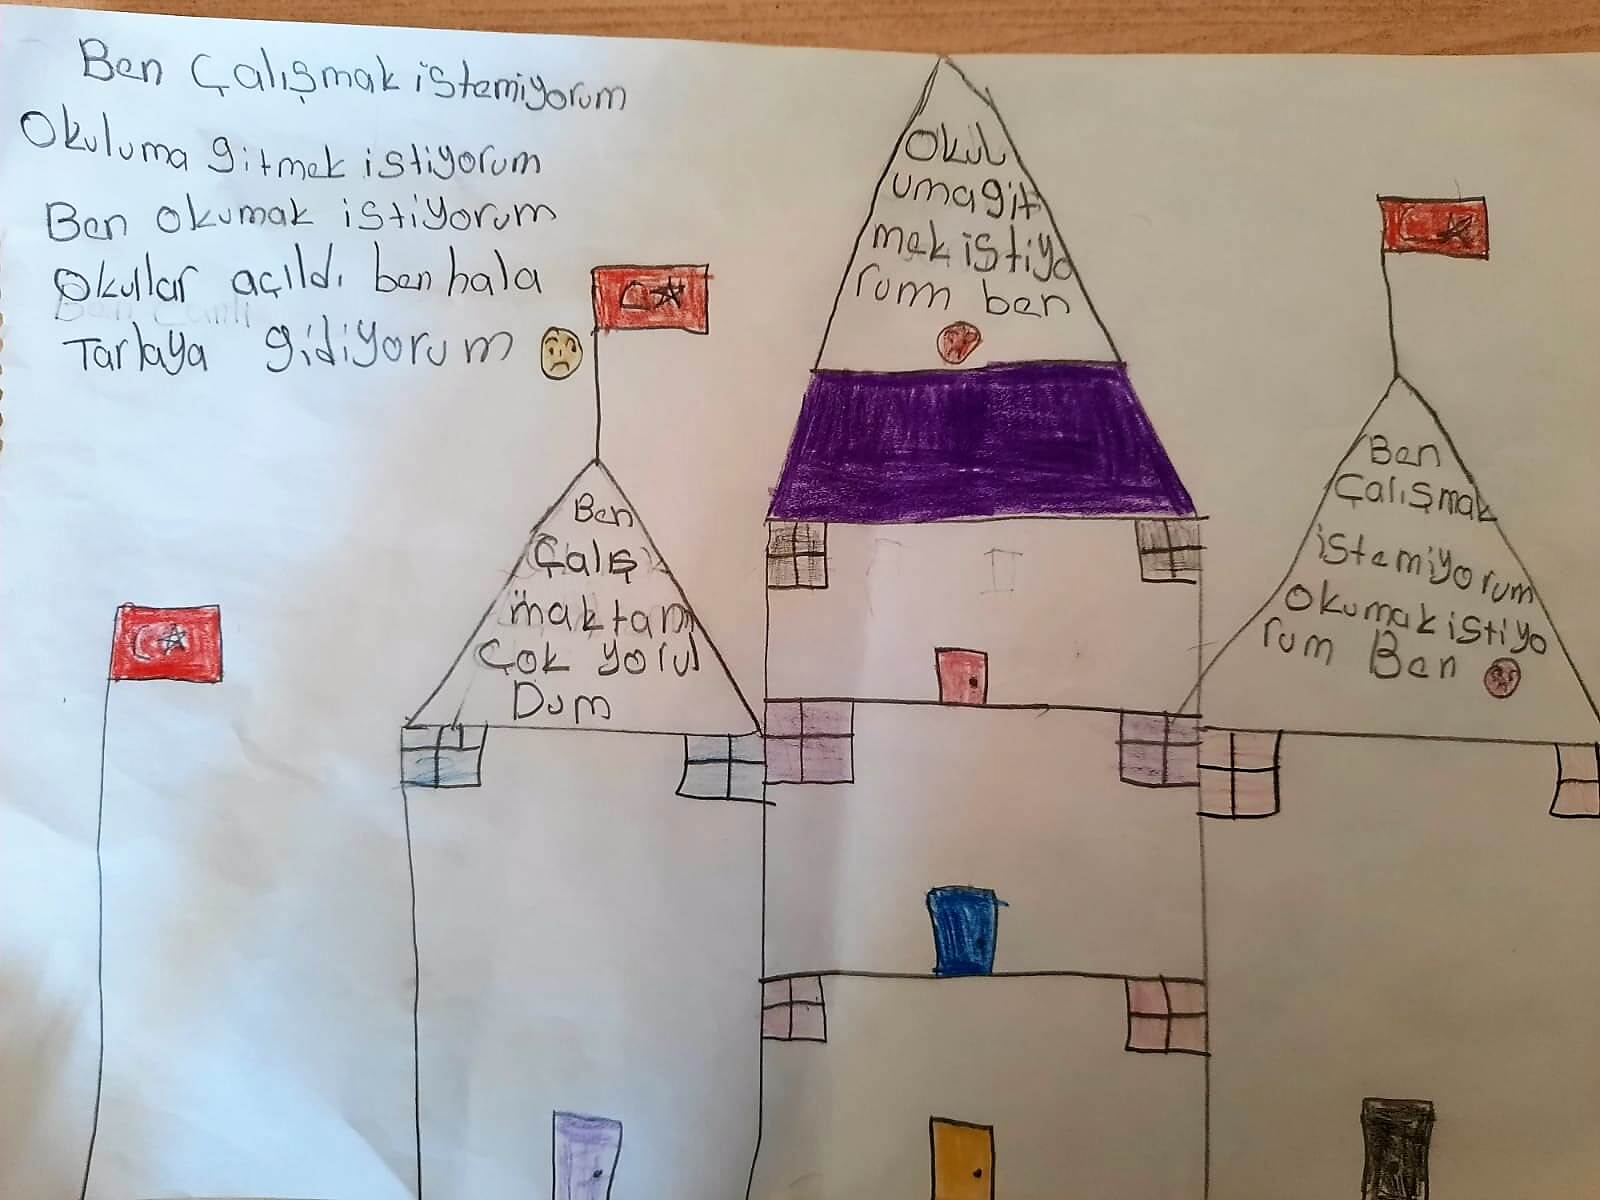 Ben Çalışmak istemiyorum
Okuluma gitmek istiyorum
Ben okumak istiyorum
Okullar açıldı ben hala
Tarlaya gidiyorum
Okul
uma git
mek istiyo
rum ben
Ben
Çalış
maktan
Çok yorul
Dum
Ben
Çalışmak
istemiyorum
okumak istiyo
rum Ben